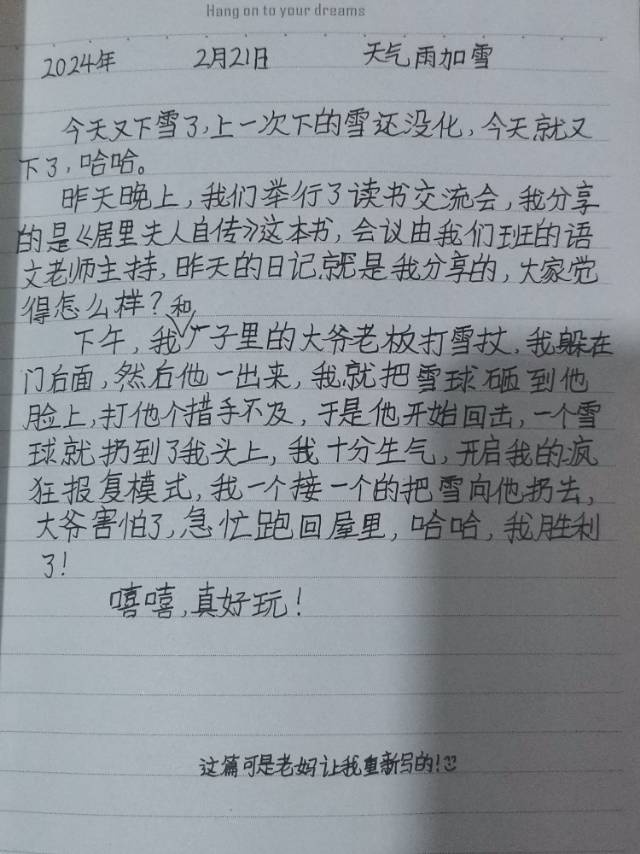 Hang on to your dreams
2024年 2月21日 天气雨加雪
今天又下雪了,上一次下的雪还没化,今天就又
下了,哈哈。
昨天晚上,我们举行了读书交流会,我分享
的是《居里夫人自传》这本书,会议由我们班的语
文老师主持,昨天的日记就是我分享的,大家觉
得怎么样?
下午,我和厂子里的大爷老板打雪扙,我躲在
门后面,然后他一出来,我就把雪球砸到他
脸上,打他个措手不及,于是他开始回击,一个雪
球就扔到了我头上,我十分生气,开启我的疯
狂报复模式,我一个接一个的把雪向他扔去,
大爷害怕了,急忙跑回屋里,哈哈,我胜利
了!
嘻嘻,真好玩!
这篇可是老妈让我重新写的!☺